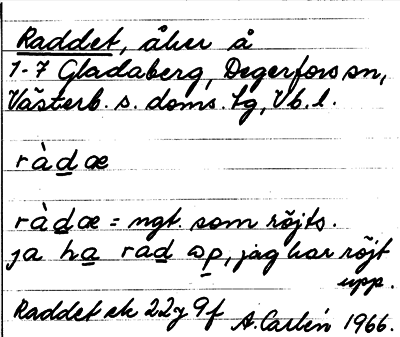 Raddet, åker å
1-7 Gladaberg, Degerfors sn,
Västerb. s. doms. tg, Vb. l.
ràdæ
ràdæ = ngt. som röjts.
ja ha rad ɷp, jag har röjt
upp.
Raddet ek 22y 9f A. Carlén 1966.